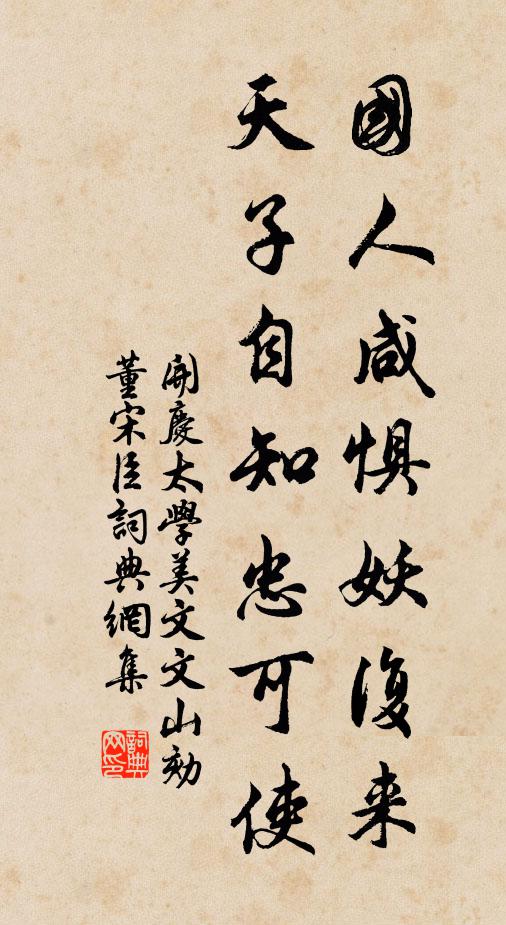 國人咸惧妖復来
天子自知忠可使
開慶太學美文文山劾
董宋臣詞典網集
詞典
网印